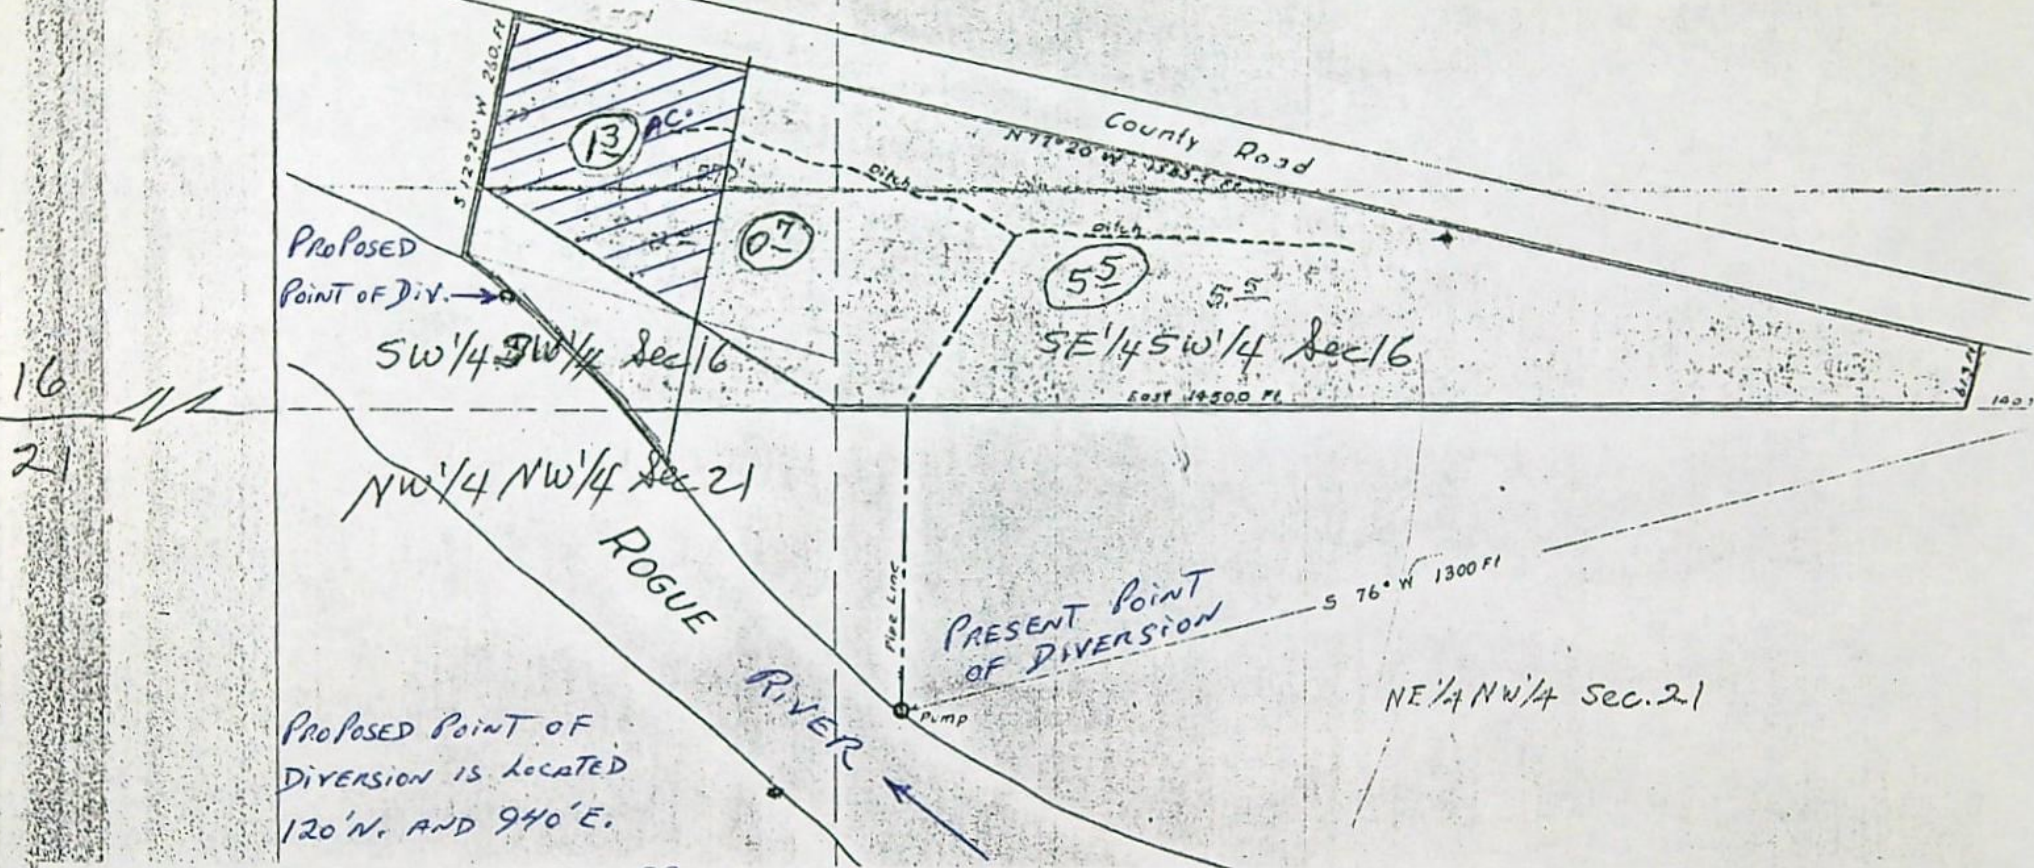 S 12° 20' W 260. Ft
13 AC.
County Road
N 77° 20' W
Ditch
07
Ditch
55
5.5
PROPOSED
POINT OF DIV.
SW 1/4 SW 1/4 Sec 16
SE 1/4 SW 1/4 Sec 16
16
21
East 1450.0 Ft
NW 1/4 NW 1/4 Sec 21
ROGUE
RIVER
Pipe Line
PRESENT POINT
OF DIVERSION
S 76° W 1300 Ft
Pump
NE 1/4 NW 1/4 Sec. 21
PROPOSED POINT OF
DIVERSION IS LOCATED
120' N. AND 940' E.